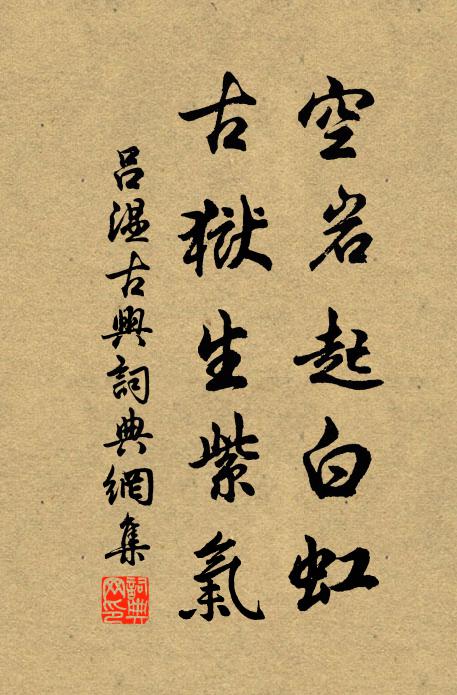 空岩起白虹
古獄生紫氣
呂溫古興詞典網集
詞典網印